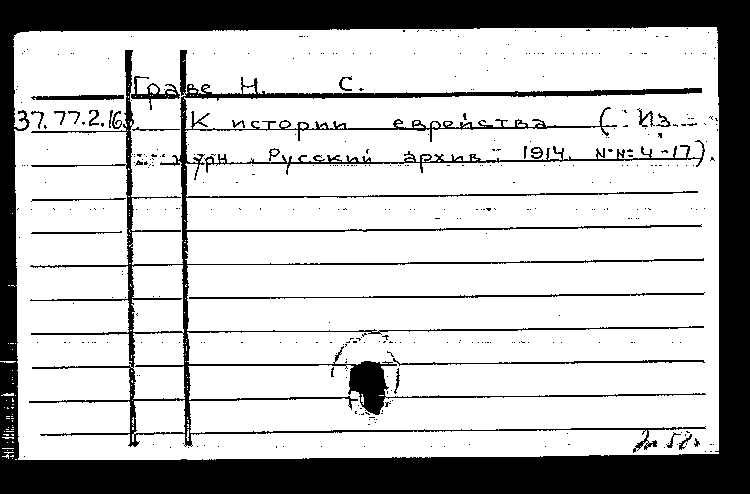 Граве, Н. С.
37.77.2.163. К истории еврейства (Из
журн. Русский архив 1914. №№ 4-17).